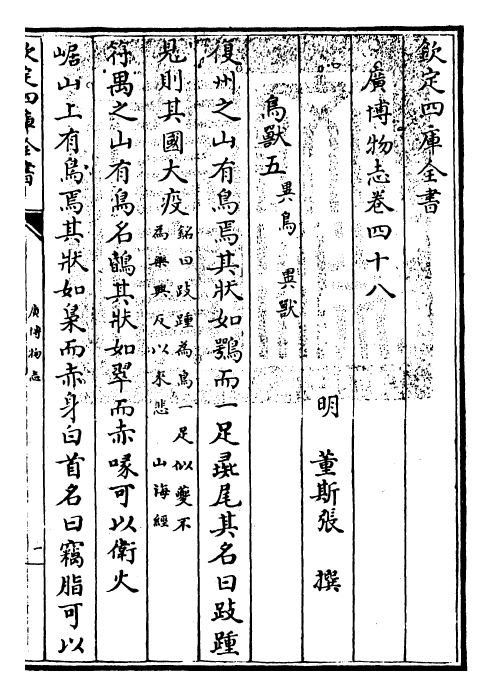 欽定四庫全書
廣博物志卷四十八
明 董斯張 撰
鳥獸五 異鳥 異獸
復州之山有鳥焉其狀如鴞而一足彘尾其名曰跂踵
見則其國大疫 銘曰跂踵為鳥一足似夔不
為樂興反以來悲 山海經
符禺之山有鳥名鴖其狀如翠而赤喙可以衛火
崌山上有鳥焉其狀如梟而赤身白首名曰竊脂可以
欽定四庫全書
廣博物志
一